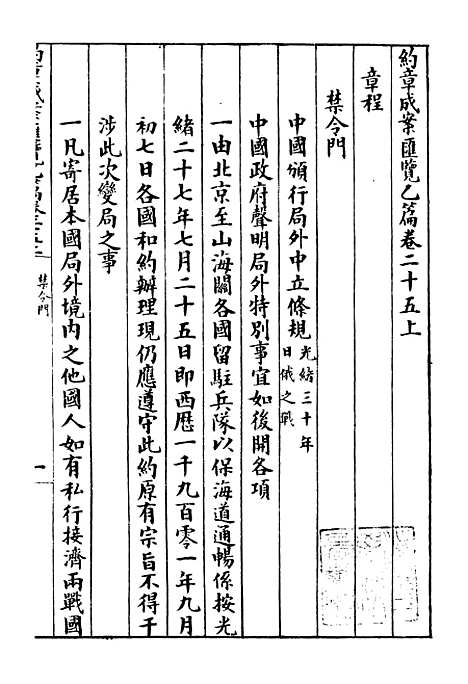 約章成案匯覽乙篇卷二十五上
章程
禁令門
中國頒行局外中立條規光緒三十年
日俄之戰
中國政府聲明局外特別事宜如後開各項
一由北京至山海關各國留駐兵隊以保海道通暢係按光
緒二十七年七月二十五日即西歷一千九百零一年九月
初七日各國和約辦理現仍應遵守此約原有宗旨不得干
涉此次變局之事
一凡寄居本國局外境內之他國人如有私行接濟兩戰國
禁令門
一